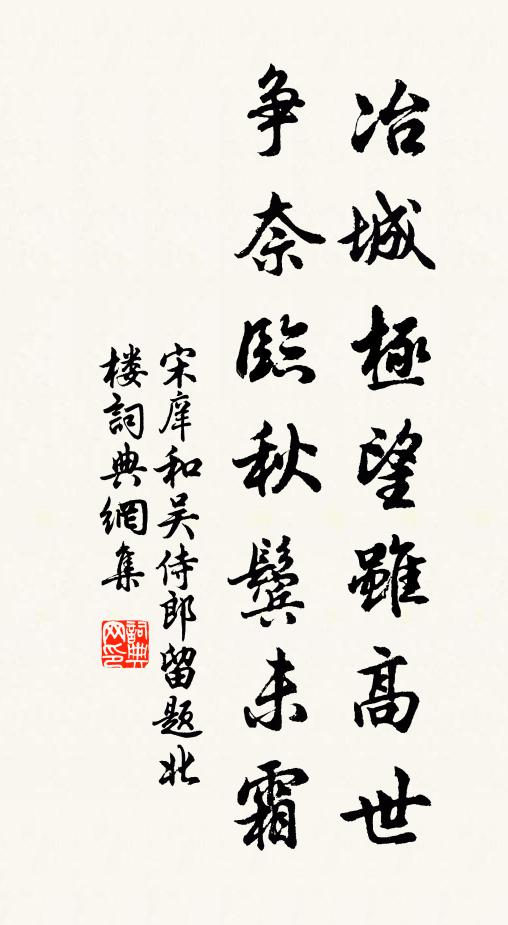 冶城極望雖高世
争奈臨秋鬢未霜
宋庠和吴侍郎留题北
楼詞典網集
詞典网印